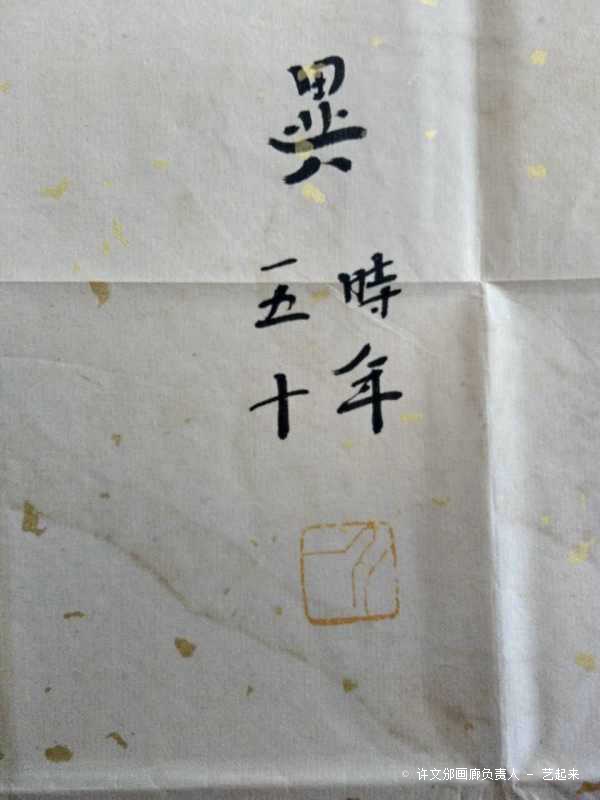 異
時年
五十
© 许文邠画廊负责人 - 艺起来